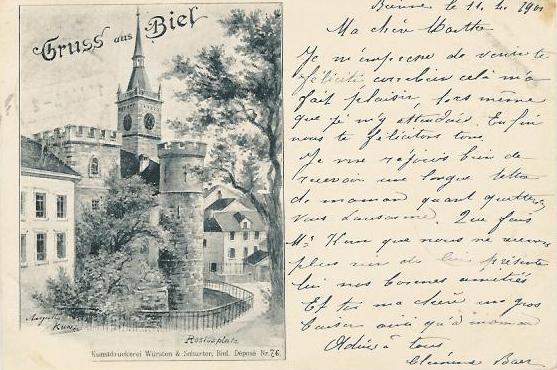 Gruss aus Biel
Rosiusplatz
Kunstdruckerei Würsten & Schurter, Biel. Déposé Nr. 76.
le 11. 1901
Ma chère Martha
Je m'empresse de venir te
féliciter combien celà m'a
fait plaisir, lors même
que je m'y attendais. Enfin
nous te félicitons tous,
Je me réjouis bien de
recevoir un longue lettre
de maman quant quitterez
vous Lausanne. Que fais
Mr que nous ne
plus rien de lui présente
lui nos bonnes amitiés
Et toi ma chère un gros
baiser ainsi qu'à maman
Adieu à tous